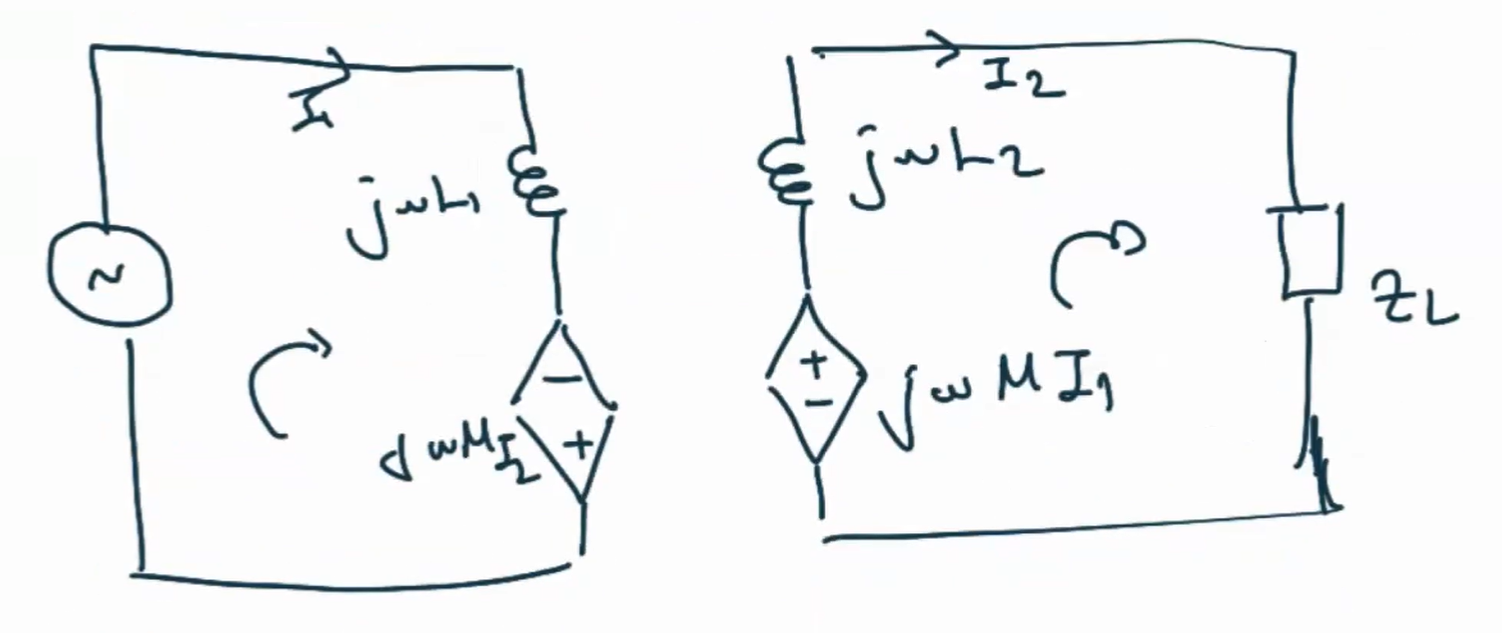 I1
jwL1
~
-
+
jwMI2
I2
jwL2
+
-
jwMI1
ZL